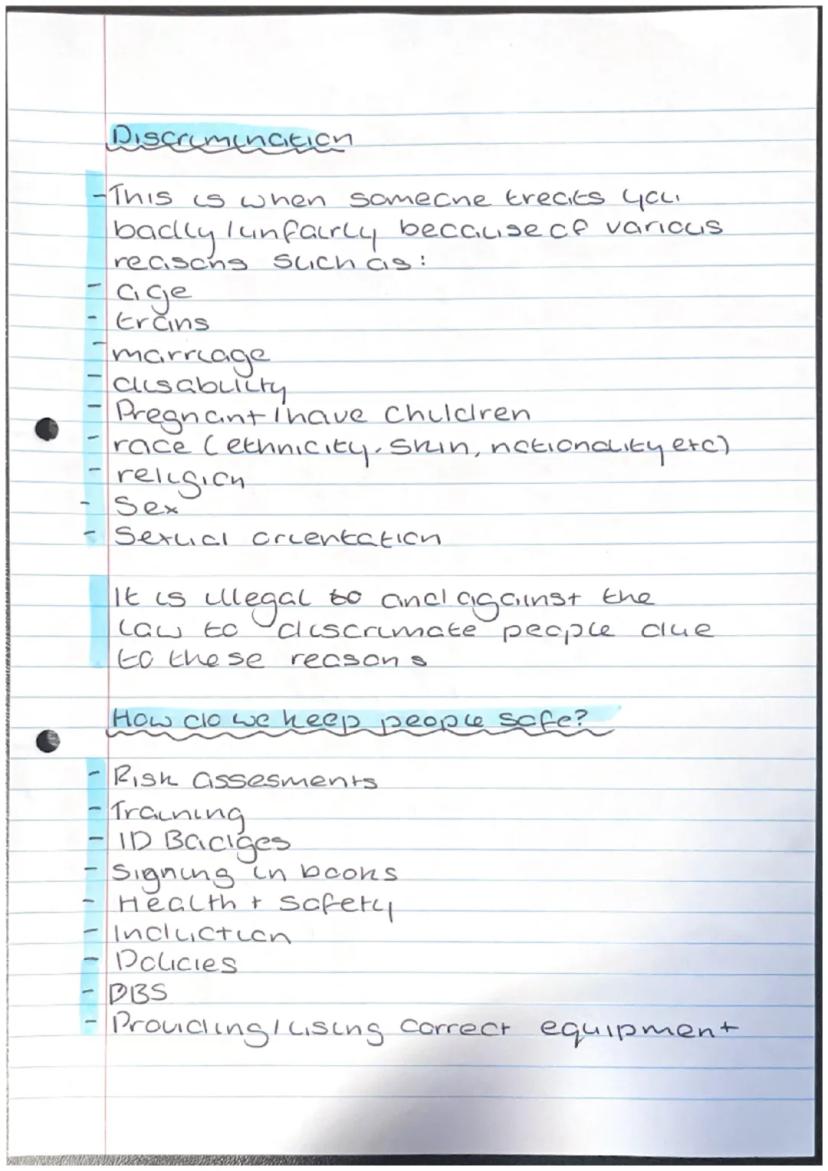 Discrimination
- This is when someone treats you
badly/unfairly because of various
reasons such as:
- age
- trans
- marriage
- disability
- Pregnant/have children
- race (ethnicity, skin, nationality etc)
- religion
- Sex
- Sexual orientation
It is illegal to and against the
law to discrimate people due
to these reasons
How do we keep people safe?
- Risk assesments
- Training
- ID Badges
- Signing in books
- Health + Safety
- Induction
- Policies
- DBS
- Providing/using correct equipment